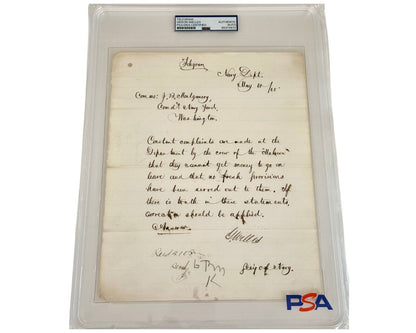 TELEGRAM
GIDEON WELLES
AUTHENTIC
AUTO
PSA/DNA CERTIFIED
Telegram
Navy Dept.
May
Commo. J. B. Montgomery,
Comd't Navy Yard,
Washington.
Constant complaints are made at the
Dept by the crew of the
that they cannot get money to go on
leave and that no fresh provisions
have been served out to them. If
there is truth in these statements,
correction should be applied.
Answer.
G Welles
Secy of Navy.
PSA